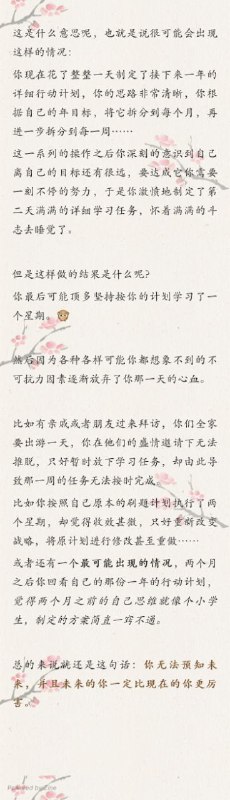 这是什么意思呢，也就是说很可能会出现
这样的情况：
你现在花了整整一天制定了接下来一年的
详细行动计划，你的思路非常清晰，你根
据自己的年目标，将它拆分到每个月，再
进一步拆分到每一周……
这一系列的操作之后你深刻的意识到自己
离自己的目标还有很远，要达成它你需要
一刻不停的努力，于是你激愤地制定了第
二天满满的详细学习任务，怀着满满的斗
志去睡觉了。
但是这样做的结果是什么呢？
你最后可能顶多坚持按你的计划学习了一
个星期。
然后因为各种各样可能你都想象不到的不
可抗力因素逐渐放弃了你那一天的心血。
比如有亲戚或者朋友过来拜访，你们全家
要出游一天，你在他们的盛情邀请下无法
推脱，只好暂时放下学习任务，却由此导
致那一周的任务无法按时完成。
比如你按照自己原本的刷题计划执行了两
个星期，却觉得收效甚微，只好重新改变
战略，将原计划进行修改甚至重做……
或者还有一个最可能出现的情况，两个月
之后你回看自己的那份一年的行动计划，
觉得两个月之前的自己思维就像个小学
生，制定的方案简直一窍不通。
总的来说就还是这句话：你无法预知未
来，并且未来的你一定比现在的你更厉
害。